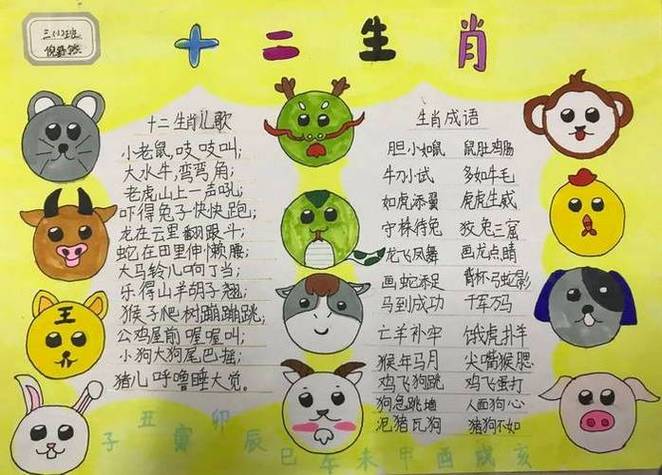 三(12)班
十二生肖
十二生肖儿歌
小老鼠,吱吱叫;
大水牛,弯弯角;
老虎山上一声吼;
吓得兔子快快跑;
龙在云里翻跟斗;
蛇在田里伸懒腰;
大马铃儿响丁当;
乐得山羊胡子翘;
猴子爬树蹦蹦跳;
公鸡屋前喔喔叫;
小狗大狗尾巴摇;
猪儿呼噜睡大觉。
生肖成语
胆小如鼠 鼠肚鸡肠
牛刀小试 多如牛毛
如虎添翼 虎虎生威
守株待兔 狡兔三窟
龙飞凤舞 画龙点睛
画蛇添足 背杯弓蛇影
马到成功 千军万马
亡羊补牢 饿虎扑羊
猴年马月 尖嘴猴腮
鸡飞狗跳 鸡飞蛋打
狗急跳墙 人面狗心
泥猪瓦狗 猪狗不如
王
子丑寅卯辰巳午未申酉戌亥